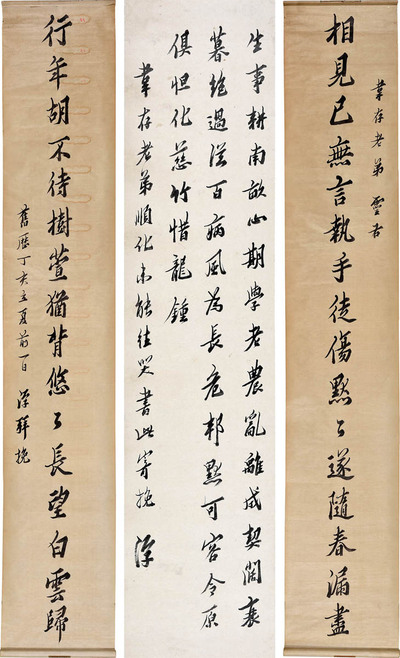 韋存老弟 靈右
相見已無言執手徒傷黯〻遂隨春漏盡
生事耕南畝心期學老農亂離成契闊衰
暮絕過從百病風為長危邦黙可容令原
俱怛化慈竹惜龍鍾
韋存老弟順化未能往哭書此寄挽
行年胡不待樹萱猶背悠〻長望白雲歸
舊歷丁亥立夏前一日 拜挽